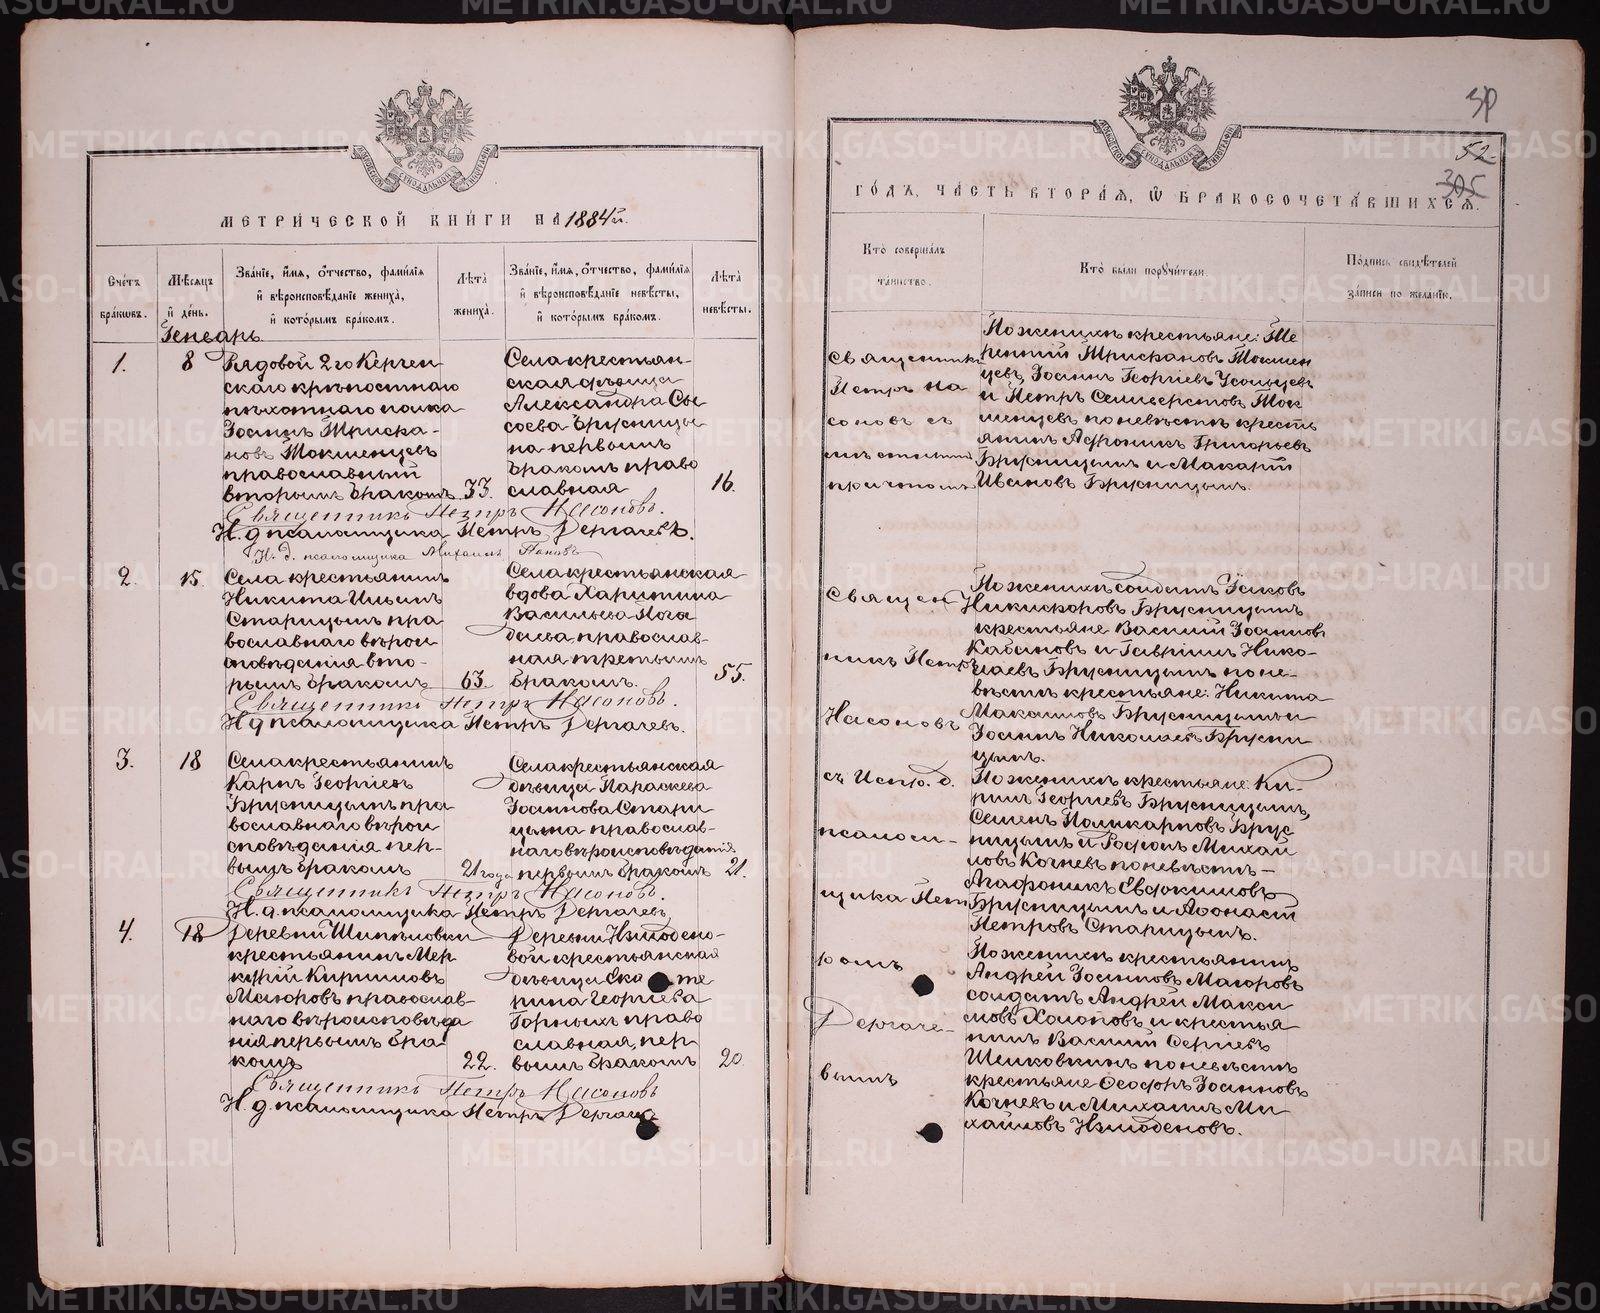 МЕТРИ́ЧЕСКОЙ КНИ́ГИ НА 1884й.
Сче́тъ бра́кωвъ.
Мѣ́сяцъ и҆ де́нь.
Зва́нїе, и҆́мя, ѻ҆́тчество, фами́лїя и҆ вѣроисповѣ́данїе жениха̀, и҆ кото́рымъ бра́комъ.
Лѣ́та жениха̀.
Зва́нїе, и҆́мя, ѻ҆́тчество, фами́лїя и҆ вѣроисповѣ́данїе невѣ́сты, и҆ кото́рымъ бра́комъ.
Лѣ́та невѣ́сты.
Генварь.
1.
8
Рядовой 2го Керчен
скаго крѣпостнаго
пѣхотнаго полка
Іоаннъ Трифа-
новъ Токменцевъ
православный
вторымъ бракомъ
33.
Села крестьян-
ская дѣвица
Александра Сы
соева Брусницы
на первымъ
бракомъ право
славная
16.
Священникъ Петръ Насоновъ.
И. д. псаломщика Петръ Дергачевъ.
И. д. псаломщика Михаилъ Поповъ
2.
15.
Села крестьянинъ
Никита Ильинъ
Старицынъ пра
вославнаго вѣрои
сповѣданія вто-
рымъ бракомъ
63.
Села крестьянская
вдова Харитина
Васильева
православ-
ная третьимъ
бракомъ.
55.
Священникъ Петръ Насоновъ.
И д псаломщика Петръ Дергачевъ.
3.
18
Села крестьянинъ
Карпъ Георгіевъ
Брусницынъ пра
вославнаго вѣрои
сповѣданія пер-
вымъ бракомъ
21 года
Села крестьянская
дѣвица Параскева
Іоаннова Стари
цына православ-
наго вѣроисповѣданія
первымъ бракомъ
21.
Священникъ Петръ Насоновъ.
И. д. псаломщика Петръ Дергачевъ
4.
18
Деревни Шипѣловки
крестьянинъ Мер
курій Кириловъ
Маіоровъ православ-
наго вѣроисповѣда
нія первымъ бра
комъ
22.
Деревни Измодено-
вой крестьянская
дѣвица Ека те
рина Георгіева
Горныхъ право
славная, пер
вымъ бракомъ
20.
Священникъ Петръ Насоновъ
И. д. псаломщика Петръ Дергачевъ
52.
305
ГО́ДЪ, ЧА́СТЬ ВТОРА́Я, Ѽ БРАКОСОЧЕТА́ВШИХСЯ.
Кто̀ соверша́лъ та́инство.
Кто̀ бы́ли порꙋчи́тели.
По́дпись свидѣ́телей за́писи по жела́нїю.
Священникъ
Петръ На
соновъ съ
мѣстнымъ
причтомъ
По женихѣ крестьяне: Те
рентій Трифановъ Токмен
цевъ, Іоаннъ Георгіевъ Усольцевъ
и Петръ Селиверстовъ Ток
менцевъ по невѣстѣ кресть
янинъ Афоникъ Григорьевъ
Брусницынъ и Макарій
Ивановъ Брусницынъ.
Священ
никъ Петръ
Насоновъ
съ Испр. д.
псалом-
щика Пет
ромъ
Дергаче-
вымъ
По женихѣ солдатъ Іаковъ
Никифоровъ Брусницынъ
крестьяне Василій Іоанновъ
Кабановъ и Гавріилъ Нико-
лаевъ Брусницынъ по не-
вѣстѣ крестьяне: Никита
Макаиловъ Брусницынъ и
Іоаннъ Николаевъ Брусни
цынъ.
По женихѣ крестьяне: Ки-
рилъ Георгіевъ Брусницынъ,
Семенъ Поликарповъ Брус
ницынъ и Родіонъ Михай
ловъ Кочневъ по невѣстѣ –
Агафоникъ Евдокимовъ
Брусницынъ и Афонасій
Петровъ Старицынъ.
По женихѣ крестьянинъ
Андрей Іоанновъ Маіоровъ
солдатъ Андрей Макси
мовъ Холоповъ и крестья
нинъ Василій Сергіевъ
Шелковкинъ по невѣстѣ
крестьяне Ѳеодоръ Іоанновъ
Кочневъ и Михаилъ Ми
хайловъ Измоденовъ.
METRIKI.GASO-URAL.RU